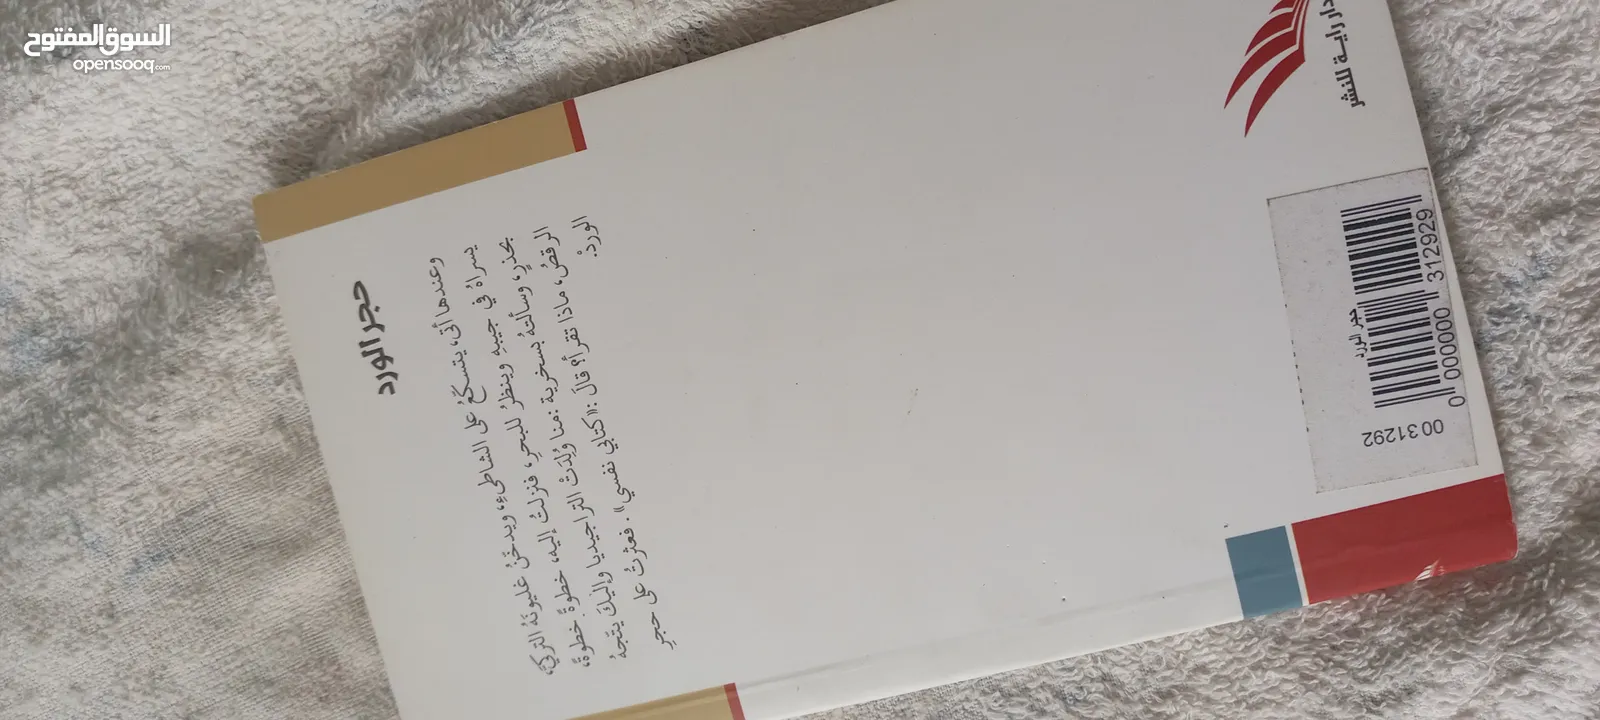 السوق المفتوح
opensooq.com
دار راية للنشر
حجر الورد
وعندها أتى، يتسكّعُ على الشاطئِ، ويدخّنُ غليونَهُ التركيَّ،
يسراهُ في جيبهِ وينظرُ للبحرِ، فنزلتُ إليه، خطوةً خطوةً،
بحذرٍ، وسألتهُ بسخرية: منا وُلِدَتْ التراجيديا وإليكَ يتّجهُ
الرقصُ، ماذا تقرأ؟ قالَ: «كتابي نفسي». فعثرتُ على حجرِ
الوردْ.
حجر الورد
0 000000 312929
0031292